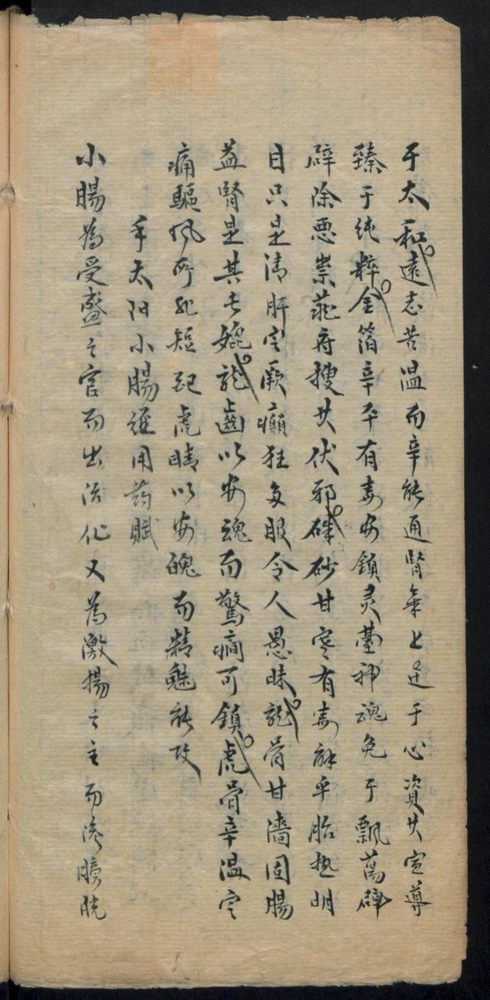 于太和遠志苦温而辛能通腎氣上達于心資其宣導
臻于純粹金箔辛平有毒安鎮灵薹神魂免于飄蕩碎
辟除悪祟菀府搜其伏邪硃砂甘寒有毒解平胎热明
目只是清肝定厥癲狂多服令人愚昧龍骨甘濇固腸
益腎是其长媲龍齒以安魂而驚癇可鎮虎骨辛温定
痛驅風所孔短起虎睛以安魄而精魅能改
手太阳小腸經用药賦
小腸為受盛之官而出治化又為激揚之主而滲膀胱